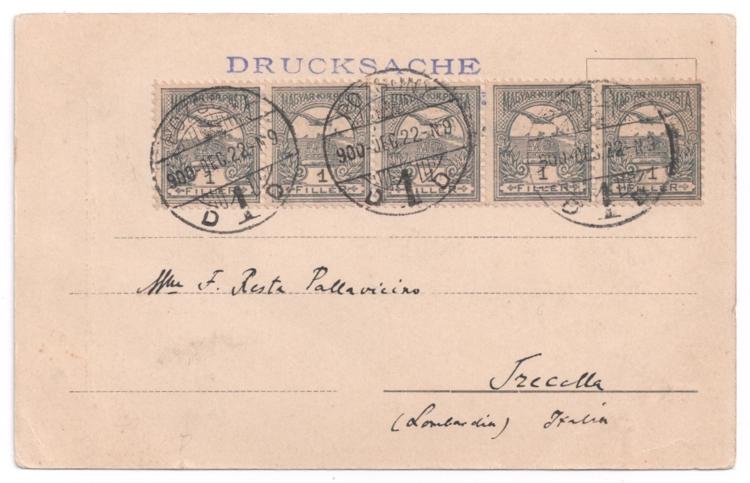 DRUCKSACHE
MAGYAR·KIR·POSTA MAGYAR·KIR·POSTA MAGYAR·KIR·POSTA MAGYAR·KIR·POSTA MAGYAR·KIR·POSTA
POZSONY
900-DEC.22-N.9 900-DEC.22-N.9 900-DEC.22-N.9
1 1 1 1 1
FILLER FILLER FILLER FILLER FILLER
D 1 D D 1 D D 1
Mme F. Resta Pallavicino
Trecella
(Lombardia) Italia